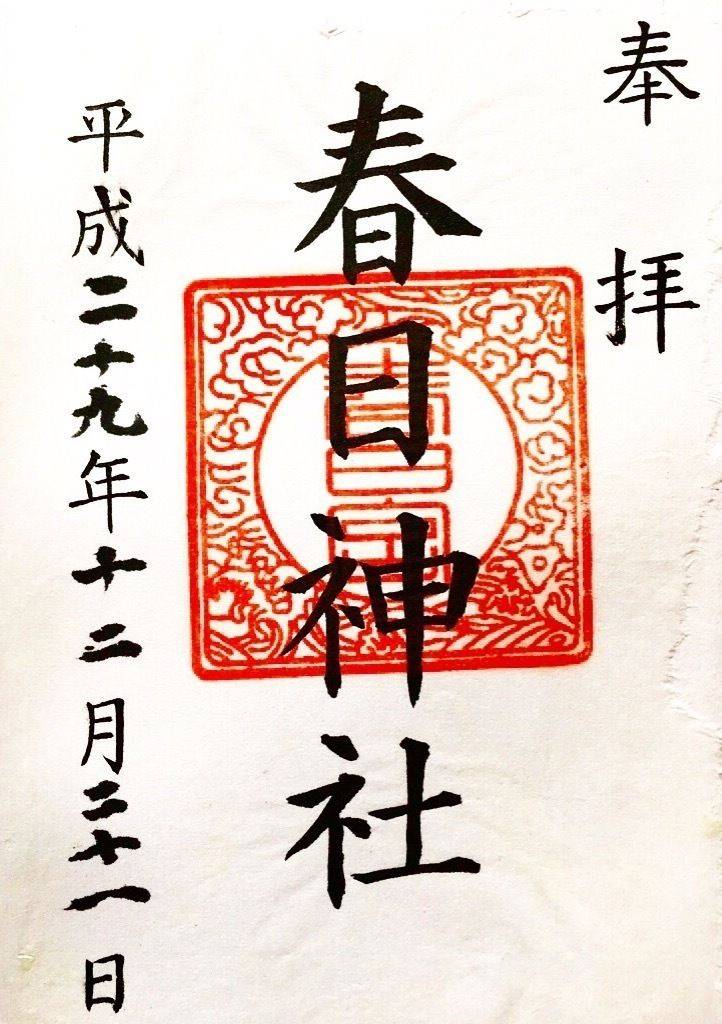 奉拝
春日神社
平成二十九年十二月二十一日